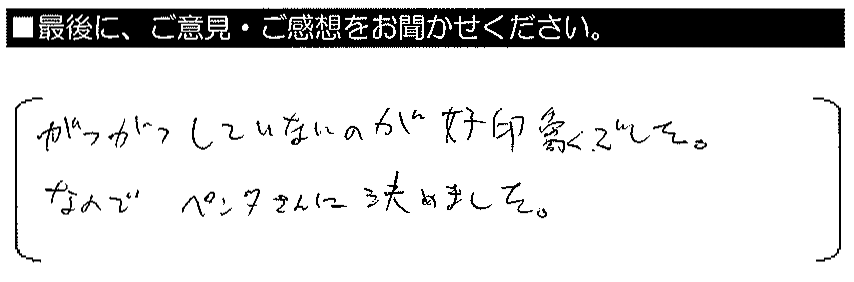 ■最後に、ご意見・ご感想をお聞かせください。
がつがつしていないのが好印象でした。
なのでペンタさんに決めました。